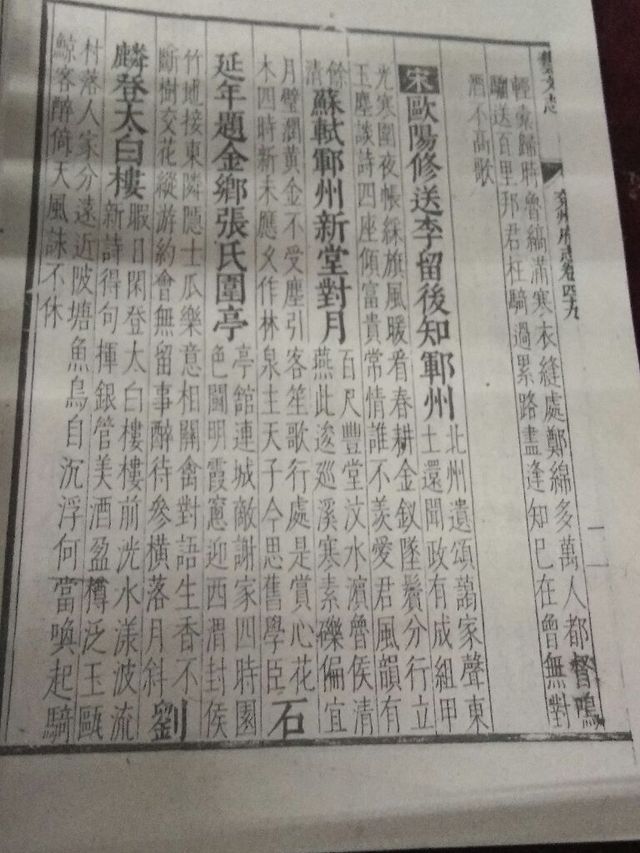 藝文志
兗州府志卷四十九
輕彙歸時魯縞滿寒衣縫處鄭綿多萬人都督鳴
騶送百里邦君枉騎過累路盡逢知已在曾無對
酒不高歌
宋歐陽修送李留後知鄆州
北州遺頌藹家聲東
土還聞政有成組甲
光寒圍夜帳綵旗風暖看春耕金釵墜鬢分行立
玉麈談詩四座傾富貴常情誰不羨愛君風韻有
餘
清
蘇軾鄆州新堂對月
百尺豐堂汶水濱魯侯清
燕此逡巡溪寒素礫偏宜
月璧潤黃金不受塵引客笙歌行處是賞心花
木四時新未應久作林泉主天子今思舊學臣
石
延年題金鄉張氏園亭
亭館連城敵謝家四時園
色鬭明霞窻迎西渭封侯
竹地接東隣隠士瓜樂意相關禽對語生香不
斷樹交花縱游約會無留事醉待參橫落月斜
劉
麟登太白樓
暇日閑登太白樓樓前洸水漾波流
新詩得句揮銀管美酒盈樽泛玉甌
村落人家分遠近陂塘魚鳥自沉浮何當喚起騎
鯨客醉倚天風詠不休